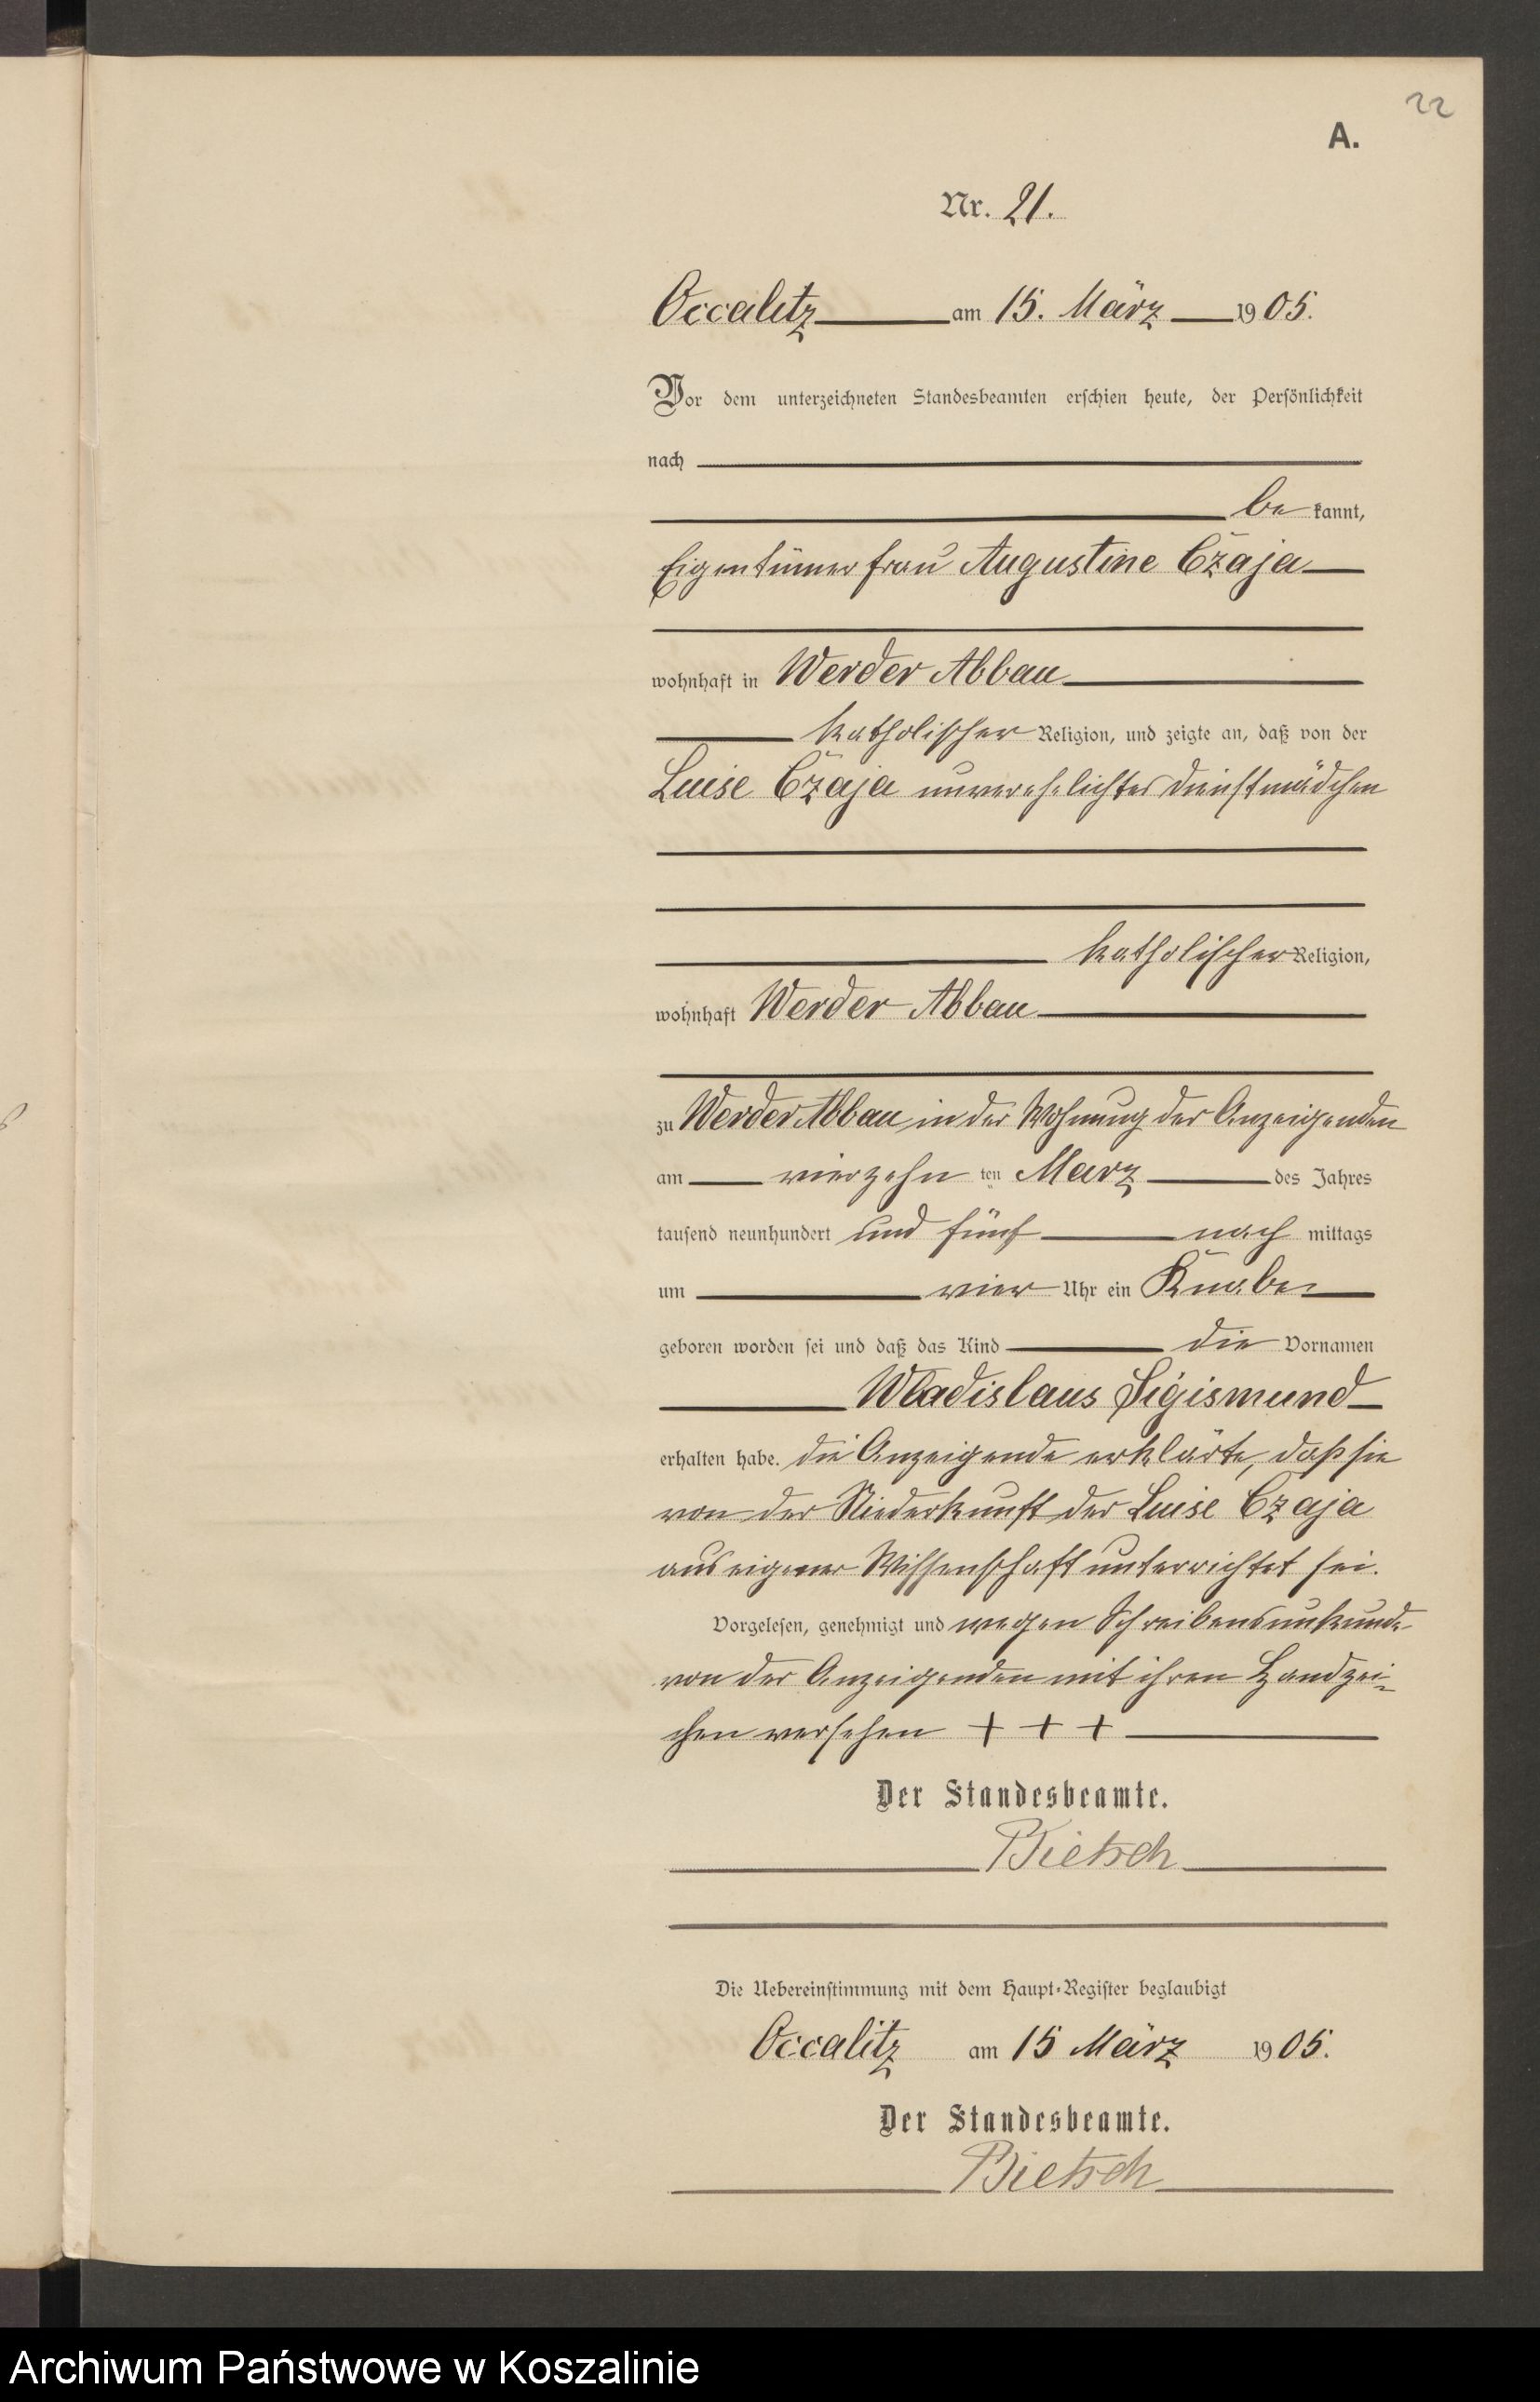 22
A.
Nr. 21.
Occalitz am 15. März 1905.
Vor dem unterzeichneten Standesbeamten erschien heute, der Persönlichkeit
nach
be kannt,
Eigentümerfrau Augustine Czaja
wohnhaft in Werder Abbau
katholischer Religion, und zeigte an, daß von der
Luise Czaja unverehelichtes Dienstmädchen
katholischer Religion,
wohnhaft Werder Abbau
zu Werder Abbau in der Wohnung der Anzeigenden
am vierzehn ten März des Jahres
tausend neunhundert und fünf nach mittags
um vier Uhr ein Knabe
geboren worden sei und daß das Kind die Vornamen
Wladislaus Sigismund
erhalten habe. die Anzeigende erklärte, daß sie
von der Niederkunft der Luise Czaja
aus eigener Wissenschaft unterrichtet sei.
Vorgelesen, genehmigt und wegen Schreibensunkunde
von der Anzeigenden mit ihren Handzei-
chen versehen + + +
Der Standesbeamte.
Bietsch
Die Uebereinstimmung mit dem Haupt-Register beglaubigt
Occalitz am 15 März 1905.
Der Standesbeamte.
Bietsch
Archiwum Państwowe w Koszalinie